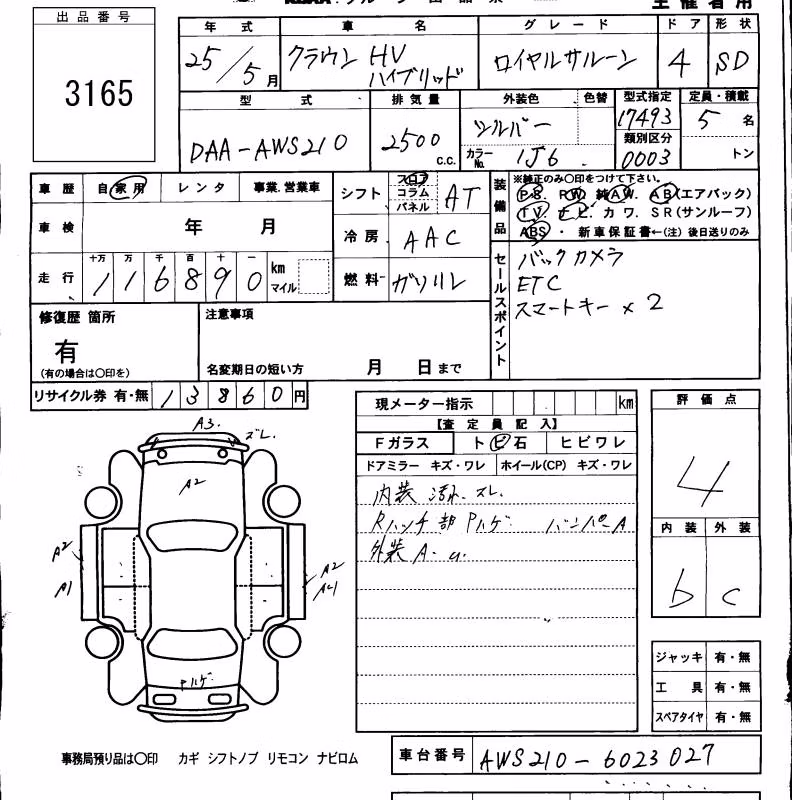 出品番号
3165
主催者用
年式 車名 グレード ドア 形状
25/5月 クラウン HV ハイブリッド ロイヤルサルーン 4 SD
型式 排気量 外装色 色替 型式指定 定員・積載
DAA-AWS210 2500 c.c. シルバー 17493 5名
カラーNo. 1J6 類別区分 0003 トン
車歴 自家用 レンタ 事業.営業車
車検 年 月
走行 十万 万 千 百 十 一
116890 km マイル
シフト フロア コラム パネル AT
冷房 AAC
燃料 ガソリン
装備品
※純正のみ〇印をつけて下さい。
P.S. P.W. 純A.W. A.B(エアバック)
T.V. ナビ. カワ. S R(サンルーフ)
ABS ・ 新車保証書←(注)後日送りのみ
セールスポイント
バックカメラ
ETC
スマートキー×2
修復歴箇所
有
(有の場合は〇印を)
注意事項
名変期日の短い方 月 日まで
リサイクル券 有・無 13860円
現メーター指示 km
【査定員記入】
Fガラス トビ石 ヒビワレ
ドアミラー キズ・ワレ ホイール(CP) キズ・ワレ
内装 汚れ.スレ.
Rハッチ部 Pハゲ バンパーA
外装 A.
評価点
4
内装 外装
b c
A3.
ズレ.
A2
A2
A1
A2
Pハゲ
ジャッキ 有・無
工具 有・無
スペアタイヤ 有・無
事務局預り品は〇印 カギ シフトノブ リモコン ナビロム
車台番号 AWS210-6023027